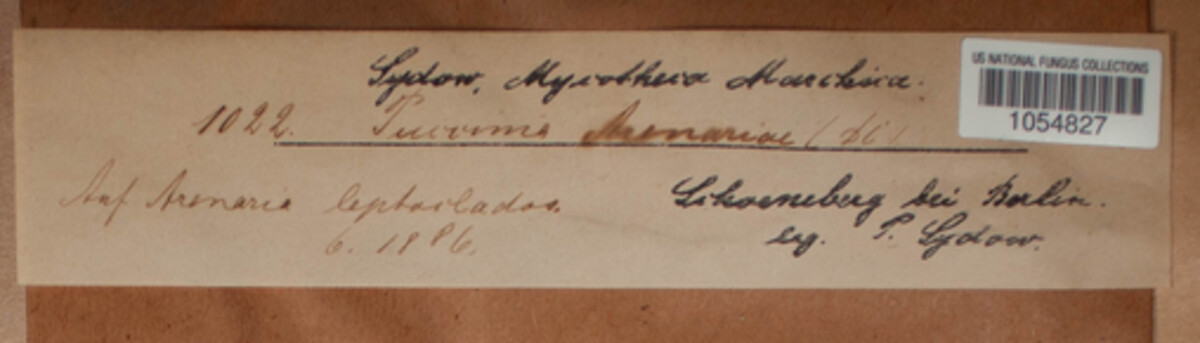 Sydow, Mycotheca Marchica.
US NATIONAL FUNGUS COLLECTIONS
1054827
1022. Puccinia Arenariae (
Auf Arenaria leptoclados.
6. 1886.
Schoeneberg bei Berlin.
leg. P. Sydow.